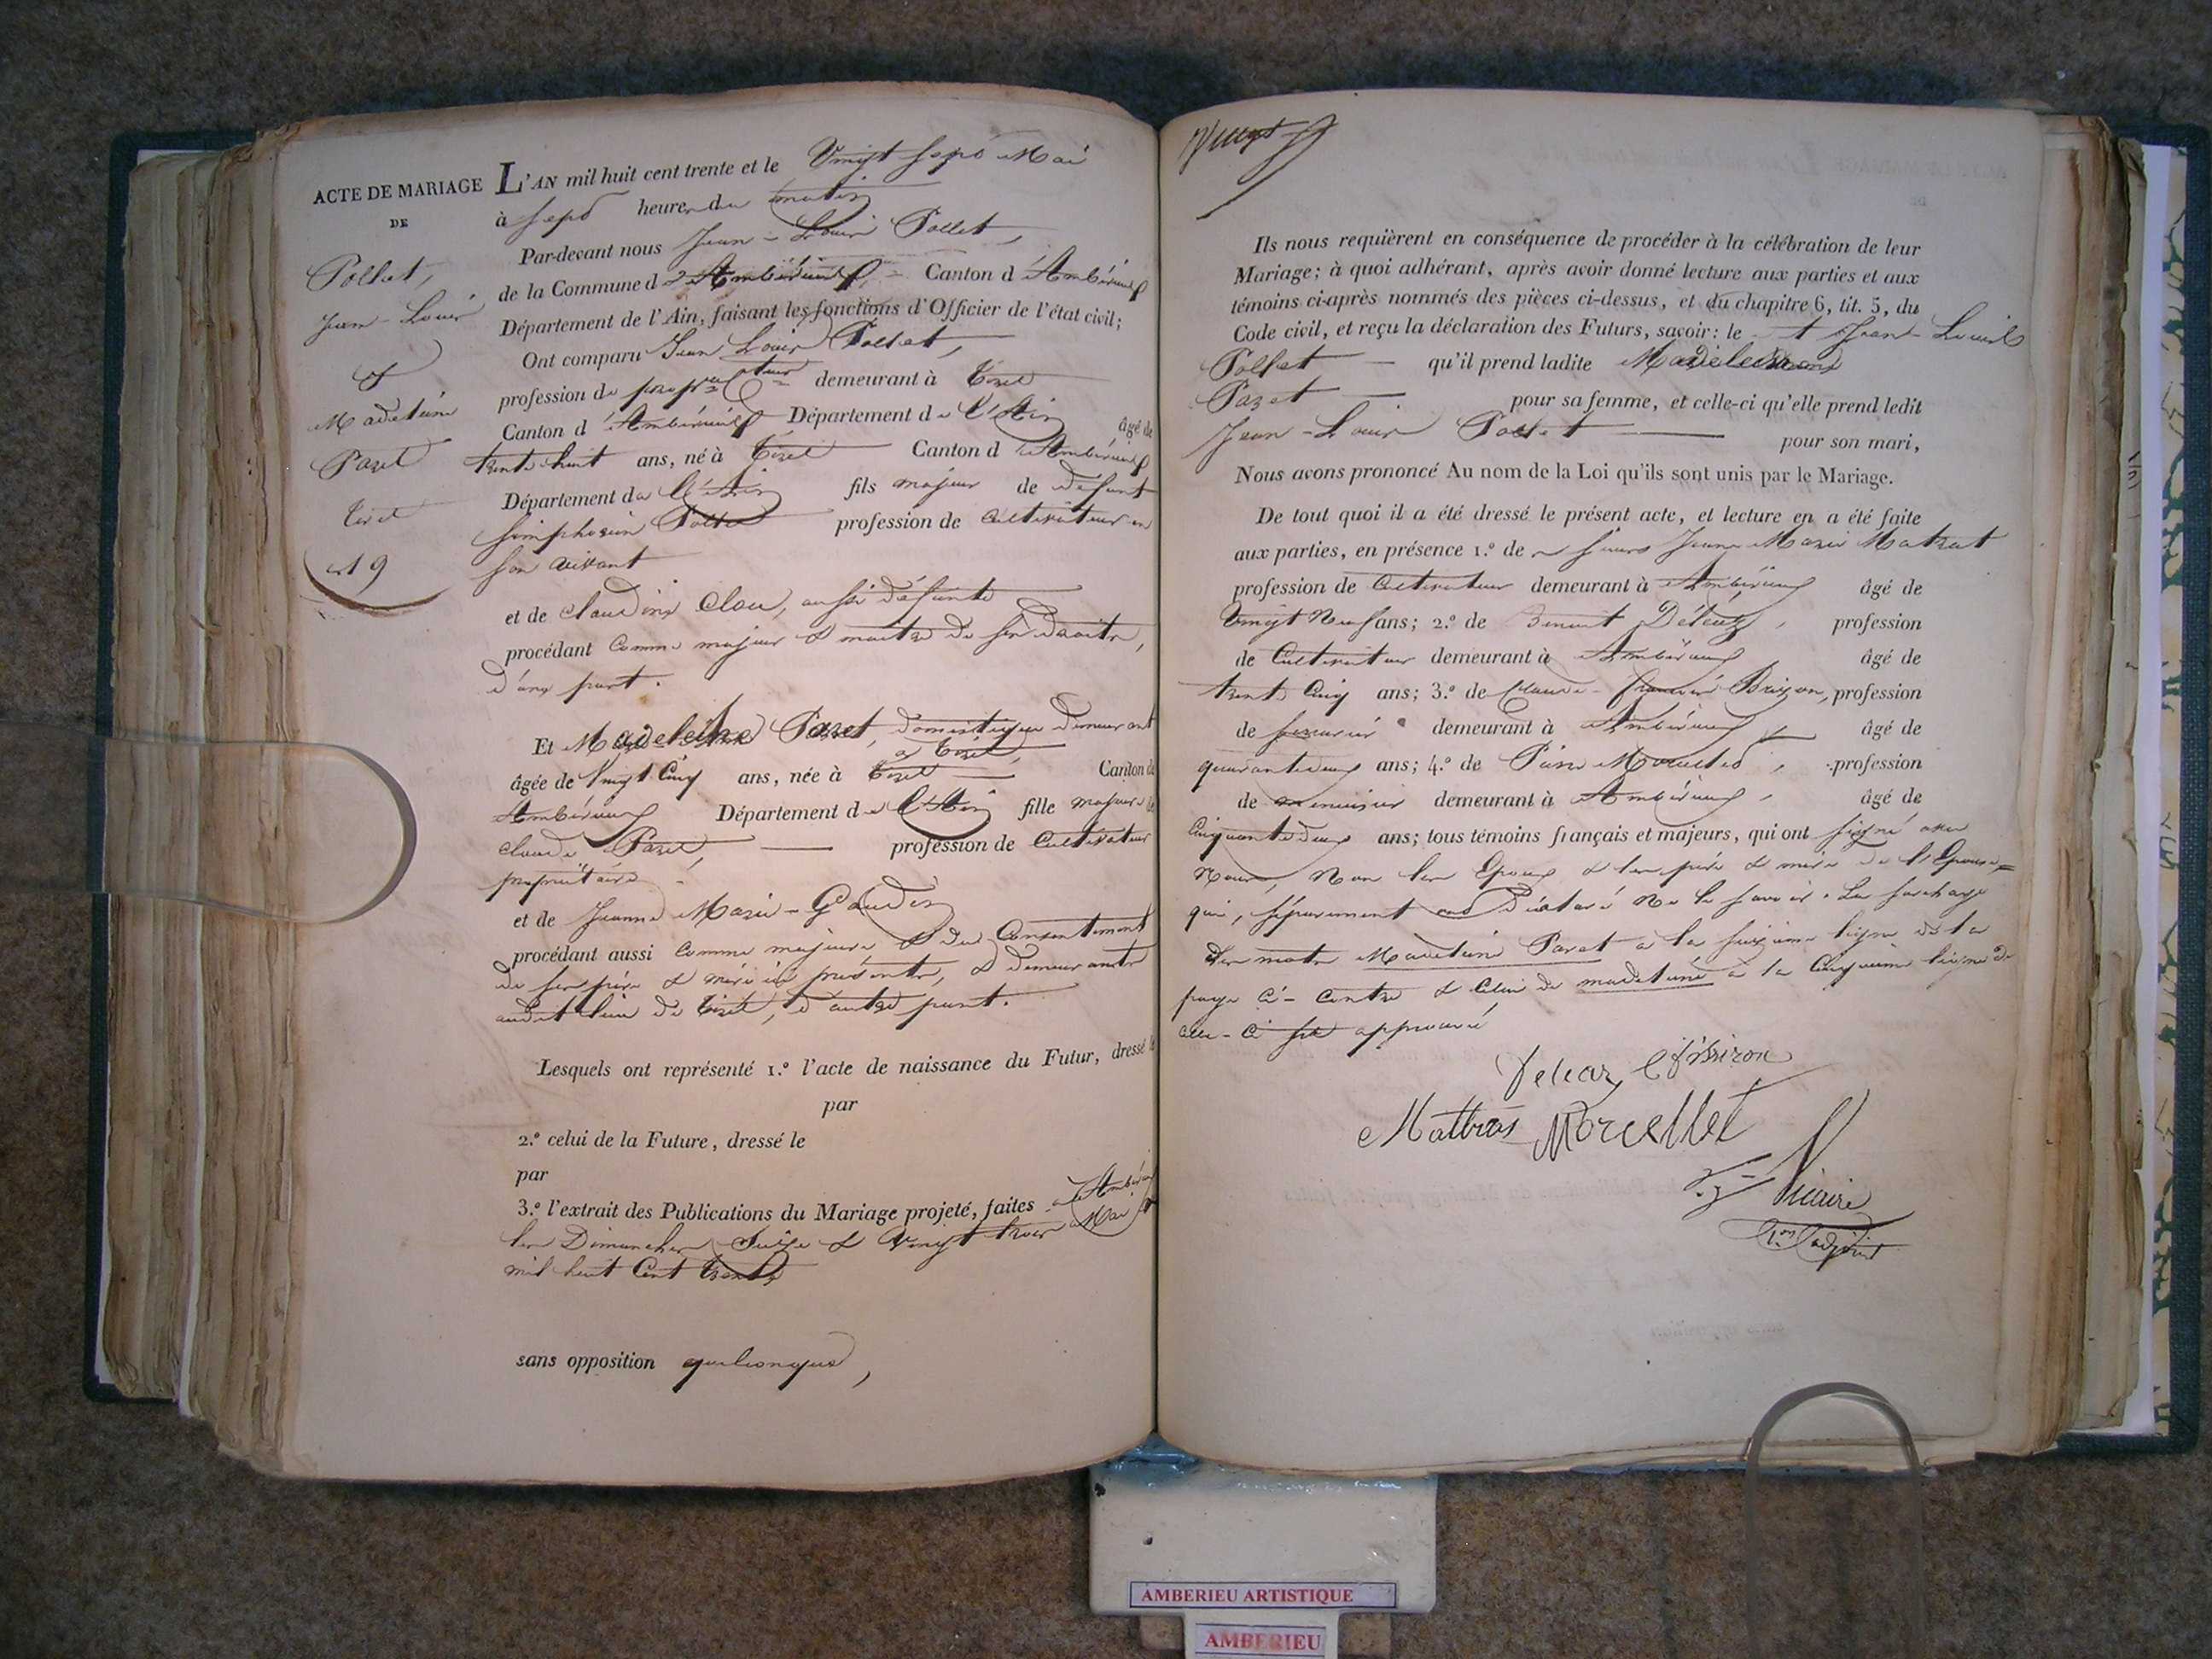 ACTE DE MARIAGE
DE
Pollet,
Jean-Louis
&
Madeleine
Pazet
Tiret
19
L'AN mil huit cent trente et le Vingt sept Mai
à sept heures du matin
Par-devant nous Jean-Louis Pollet,
de la Commune d'Ambérieux Canton d'Ambérieux
Département de l'Ain, faisant les fonctions d'Officier de l'état civil;
Ont comparu Jean Louis Pollet,
profession de demeurant à Tiret
Canton d'Ambérieux Département de l'Ain âgé de
trente huit ans, né à Tiret Canton d'Ambérieux
Département de l'Ain fils majeur de défunt
Simphorien Pollet profession de Cultivateur en
son vivant
et de Claudine Clou, aussi défunte
procédant Comme majeur & maitre de ses droits,
d'une part.
Et Madeleine Pazet, domestique demeurant
à Tiret,
âgée de Vingt Cinq ans, née à Tiret Canton d
Ambérieux Département de l'Ain fille majeure de
Claude Pazet, profession de Cultivateur
propriétaire
et de Jeanne Marie-Gaudin
procédant aussi Comme majeure & du Consentement
de ses père & mère ici présents, & demeurants
audit lieu de Tiret, d'autre part.
Lesquels ont représenté 1.º l'acte de naissance du Futur, dressé le
par
2.º celui de la Future, dressé le
par
3.º l'extrait des Publications du Mariage projeté, faites à Ambérieux
les Dimanches Seize & Vingt trois Mai
mil huit Cent trente
sans opposition quelconque,
Ils nous requièrent en conséquence de procéder à la célébration de leur
Mariage; à quoi adhérant, après avoir donné lecture aux parties et aux
témoins ci-après nommés des pièces ci-dessus, et du chapitre 6, tit. 5, du
Code civil, et reçu la déclaration des Futurs, savoir: le Jean-Louis
Pollet qu'il prend ladite Madeleine
Pazet pour sa femme, et celle-ci qu'elle prend ledit
Jean-Louis Pollet pour son mari,
Nous avons prononcé Au nom de la Loi qu'ils sont unis par le Mariage.
De tout quoi il a été dressé le présent acte, et lecture en a été faite
aux parties, en présence 1.º de Marie
profession de Cultivateur demeurant à Ambérieux âgé de
Vingt Neuf ans; 2.º de Benoit profession
de Cultivateur demeurant à Ambérieux âgé de
trente Cinq ans; 3.º de Claude-François Brizon, profession
de demeurant à Ambérieux âgé de
quarante deux ans; 4.º de profession
de menuisier demeurant à Ambérieux, âgé de
Cinquante deux ans; tous témoins français et majeurs, qui ont signé avec
Nous, Non les Epoux & les père & mère de l'Epouse
qui, séparément ont déclaré Ne le savoir. La surcharge
des mots Madeleine Pazet à la ligne de la
page Ci-Contre & Celui de madeleine à la Cinquième ligne de
celle-Ci est approuvé
Cf Brizon
Mathras Morcellet
Vicaire
adjoint
AMBERIEU ARTISTIQUE
AMBERIEU